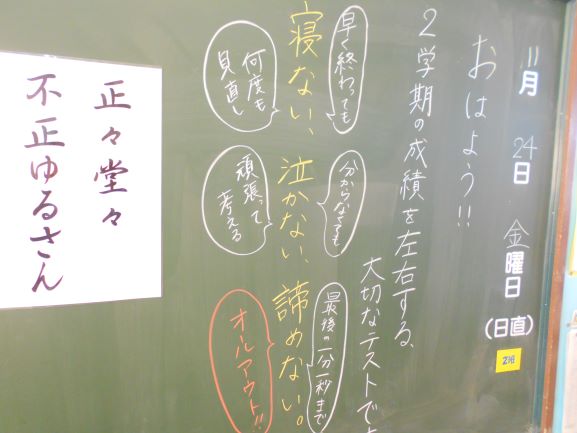 11月24日金曜日
(日直)
2班
おはよう!!
2学期の成績を左右する、
大切なテストです
早く終わっても
寝ない、
何度も
見直し
分からなくても
泣かない、
頑張って
考える
最後の一分一秒まで
諦めない。
オールアウト!!
正々堂々
不正ゆるさん